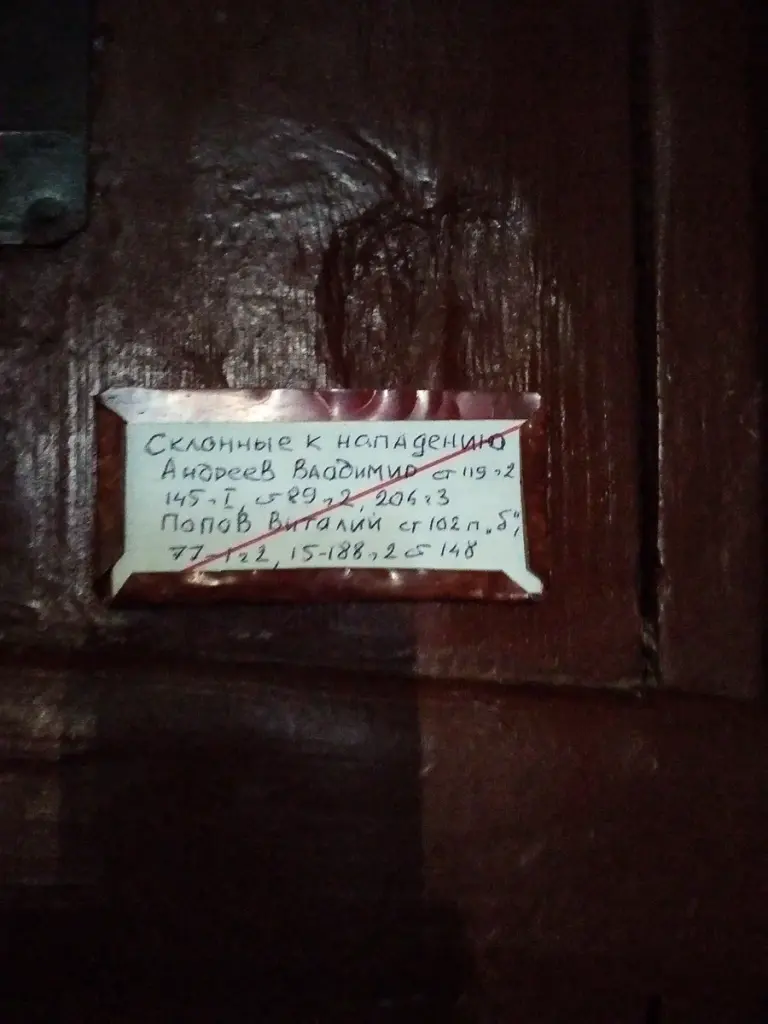 Склонные к нападению
Андреев Владимир ст 119 ч 2
145 ч. I, ст 89 ч 2, 206 ч 3
Попов Виталий ст 102 п. „б“,
77-1 ч 2, 15-188 ч 2 ст 148